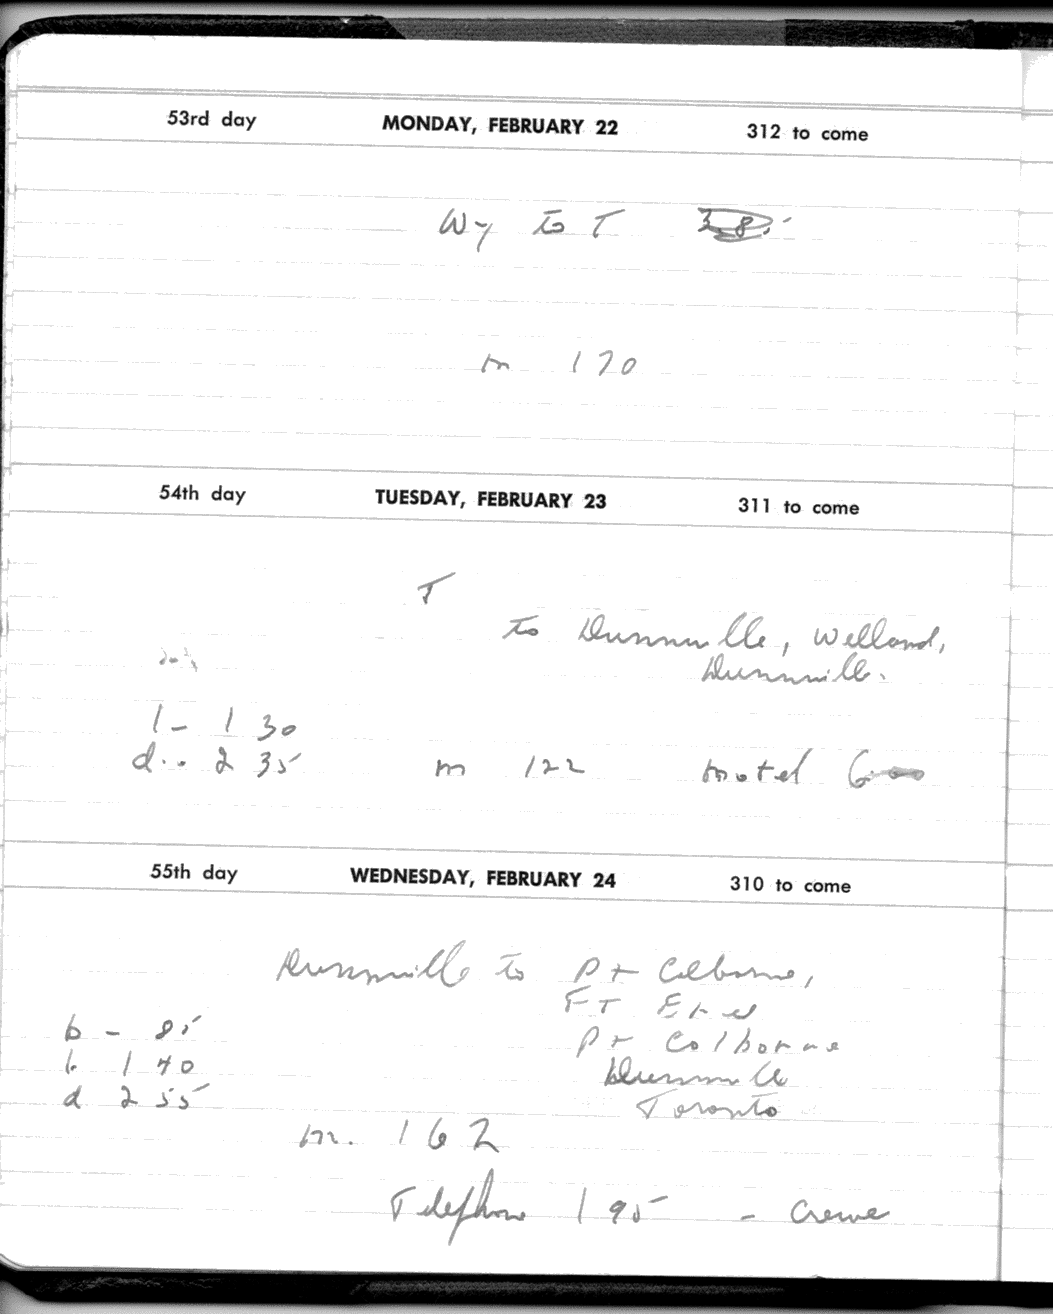 53rd day MONDAY, FEBRUARY 22 312 to come
Wy to T
m 170
54th day TUESDAY, FEBRUARY 23 311 to come
T
to Dunnville, Welland,
Dunnville.
l - 1 30
d.. 2 35 m 122 motel 6 00
55th day WEDNESDAY, FEBRUARY 24 310 to come
Dunnville to Pt Colborne,
FT Erie
b - 85 Pt Colborne
l. 1 40 Dunnville
d 2 55 Toronto
m. 162
Telephone 1 95 - Crewe